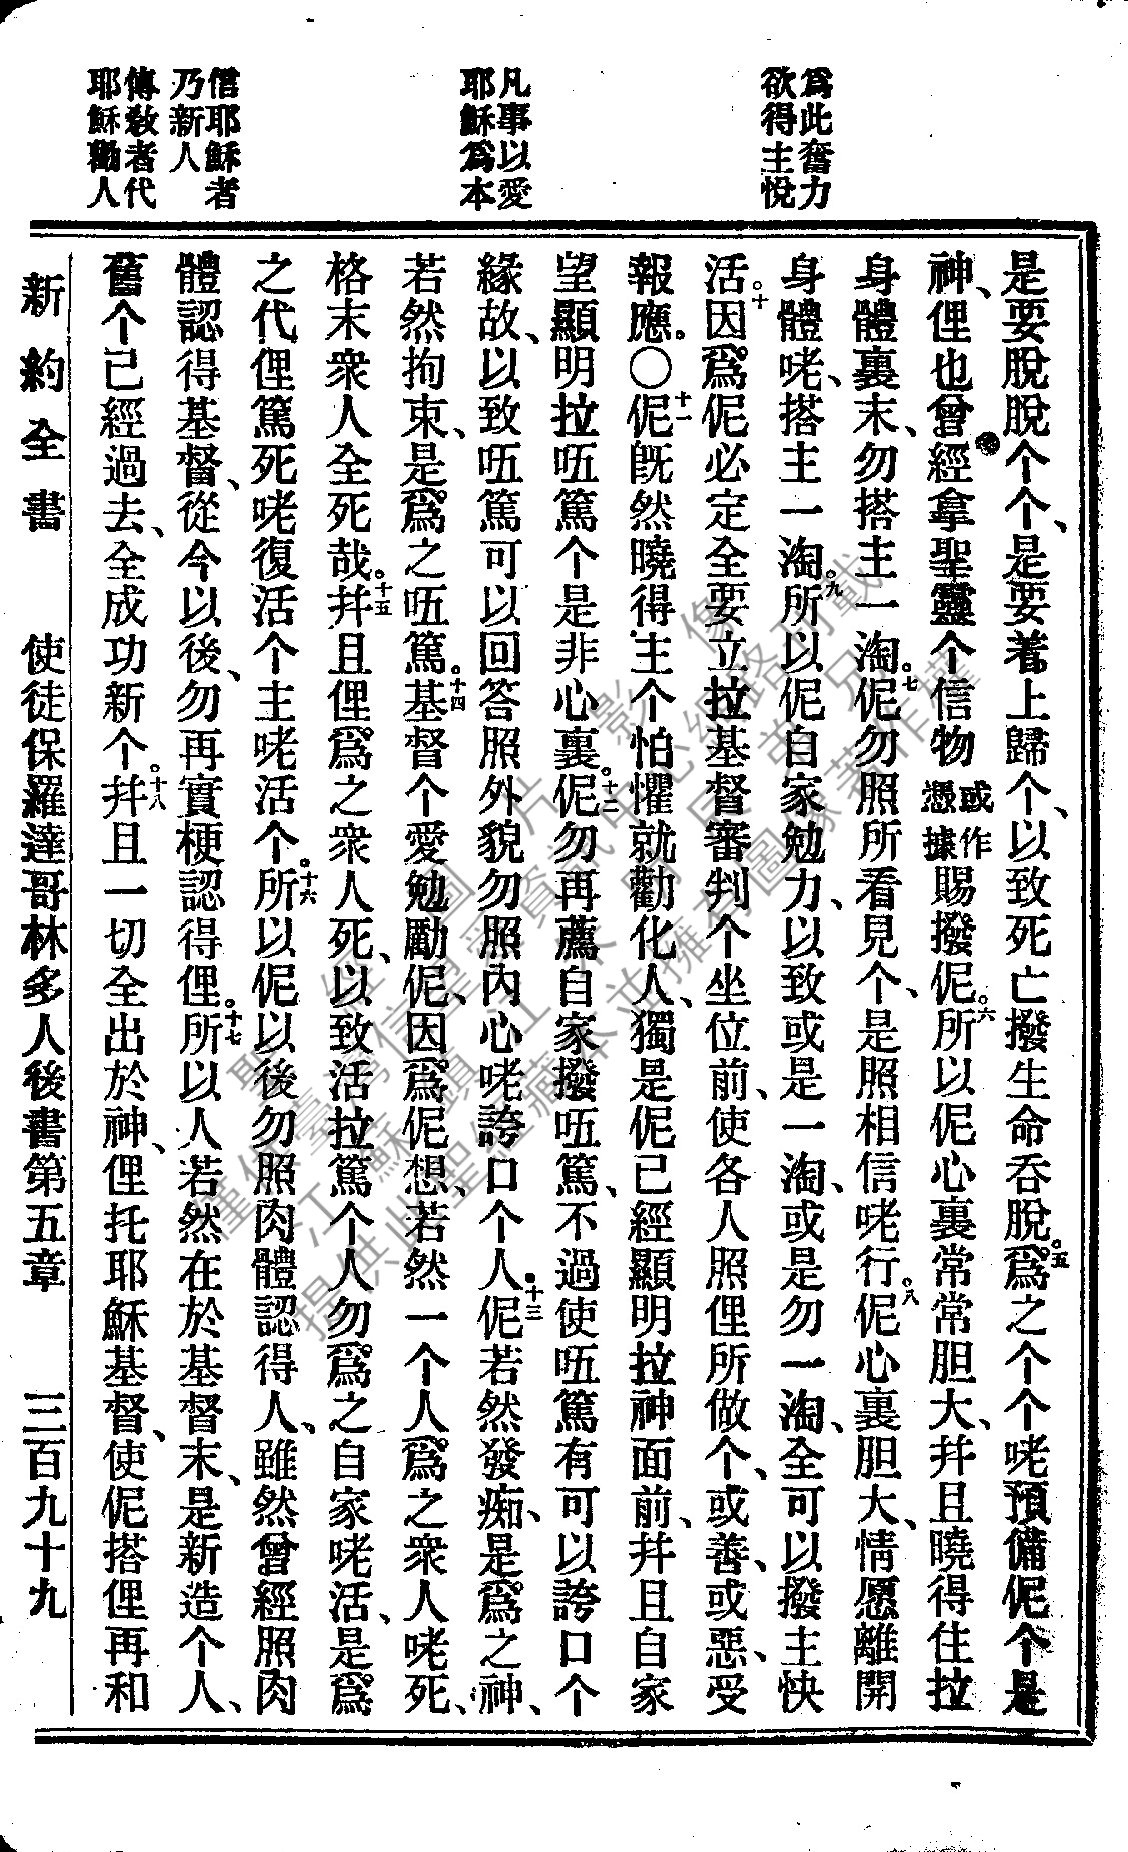 爲此奮力
欲得主悅
凡事以愛
耶穌爲本
信耶穌者
乃新人
傳敎者代
耶穌勸人
是要脫脫个个、是要着上歸个、以致死亡撥生命呑脫。五爲之个个咾預備伲个是
神、俚也曾經拿聖靈个信物或作憑據賜撥伲。六所以伲心裏常常胆大、幷且曉得住拉
身體裏末、勿搭主一淘。七伲勿照所看見个、是照相信咾行。八伲心裏胆大、情愿離開
身體咾、搭主一淘。九所以伲自家勉力、以致或是一淘、或是勿一淘、全可以撥主快
活。十因爲伲必定全要立拉基督審判个坐位前、使各人照俚所做个、或善、或惡、受
報應。〇十一伲旣然曉得主个怕懼、就勸化人、獨是伲已經顯明拉神面前、幷且自家
望顯明拉㕶篤个是非心裏。十二伲勿再薦自家撥㕶篤、不過使㕶篤有可以誇口个
緣故、以致㕶篤可以回答照外貌勿照內心咾誇口个人。十三伲若然發痴、是爲之神、
若然拘束、是爲之㕶篤。十四基督个愛勉勵伲、因爲伲想、若然一个人爲之衆人咾死、
格末衆人全死哉。十五幷且俚爲之衆人死、以致活拉篤个人勿爲之自家咾活、是爲
之代俚篤死咾復活个主咾活个。十六所以伲以後勿照肉體認得人、雖然曾經照肉
體認得基督、從今以後、勿再實梗認得俚。十七所以人若然在於基督末、是新造个人、
舊个已經過去、全成功新个。十八幷且一切全出於神、俚托耶穌基督、使伲搭俚再和
新約全書　使徒保羅達哥林多人後書第五章　三百九十九